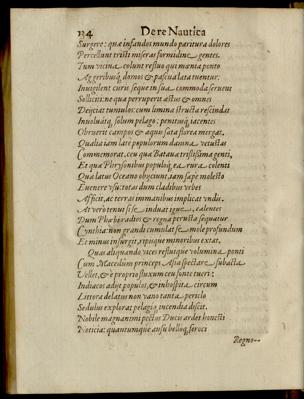 134 De re Nautica
Surgere: quæ infandos mundo paritura dolores
Percellunt tristi miseras formidine gentes.
Tum vicina colunt resluo qui mania ponto
Aggeribusq́; domos & pascua lata tuentur:
Invigilent curis seque in sua commoda servent
Solliciti: ne qua perruperit æstus & omnes
Deijciat tumulos: cum limina structa rescindas
Involuatq́; solum pelago: penitusq́; iacentes
Obruerit campos & aqua sata florea mergat.
Qualia iam late populorum damna vetustas
Commemorat, ceu qua Batava tristissima genti,
Et qua Phrysonibus populoq́; ea rura colenti
Quà latus Oceano obijciunt, iam sæpe molesto
Evenere usu: totas dum cladibus urbes
Afficit, ac terras immanibus implicat undis.
At vero tenui si se induat igne, calentes
Dum Phaebo radios & regna peruncta sequatur
Cynthia: non grandi cumulat se mole profundum
Et minus insurgit, ripisque minoribus extat.
Quas aliquando vices resluique volumina ponti
Cum Macedum princeps Asia spectare subacta
Vellet, & è proprio fluxum ceu fonte tueri:
Indiacos adijt populos, & inhospita circum
Littora delatus non vano tanta periclo
Sedulus explorat pelagiq́; incendia discit.
Nobile magnanimi pectus Ducis ardet honesti
Noticia: quantumque ausu belloq́; feroci
Regno--